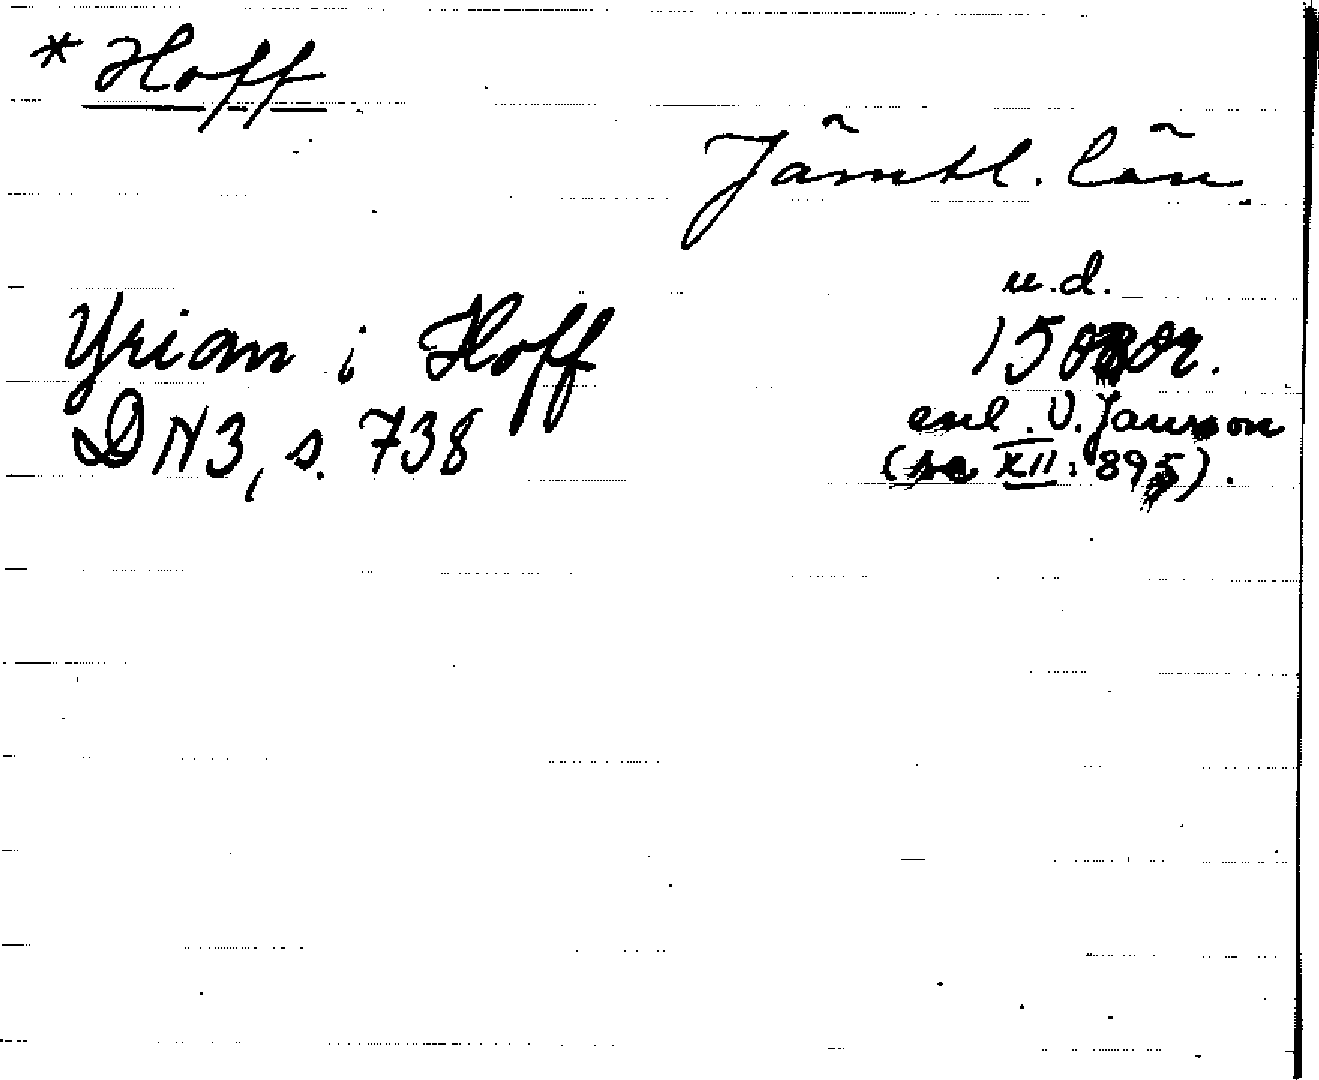 * Hoff
Jämtl. län
u.d.
Yrian i Hoff
DN3, s. 738
enl. V. Jansson
(se XII: 895).